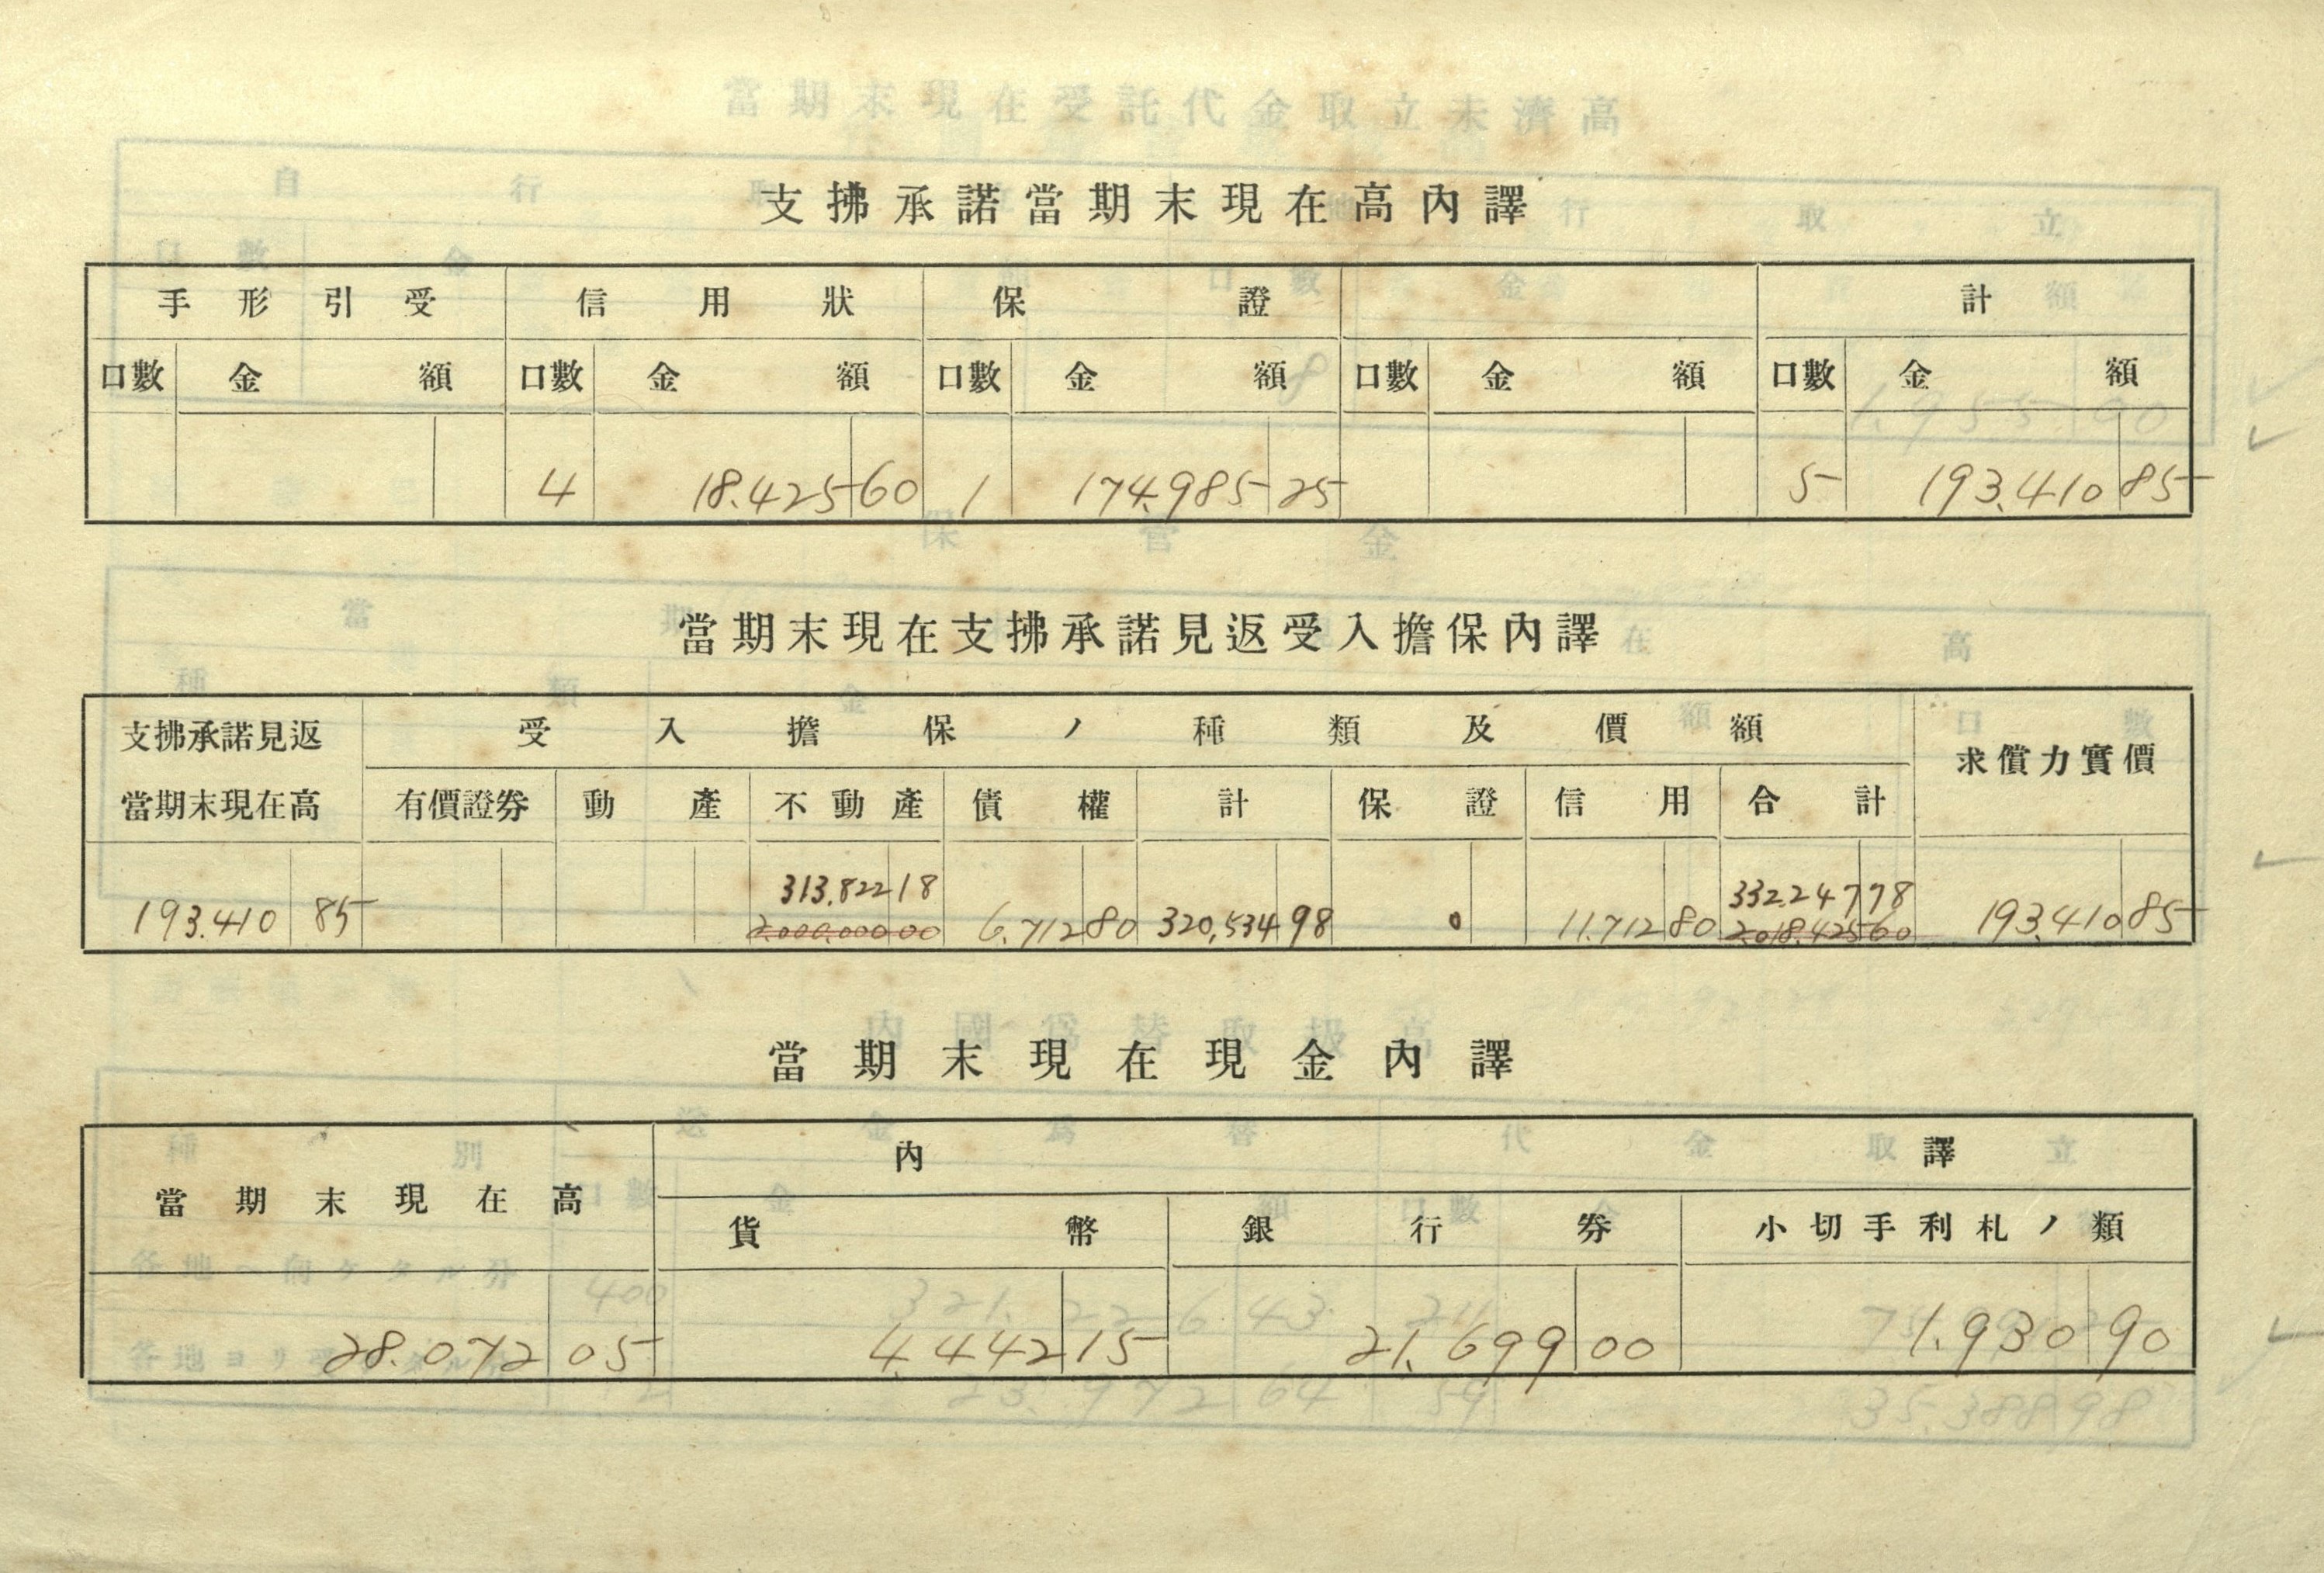 支拂承諾當期末現在高內譯
手形引受 信用狀 保證 計
口數 金額 口數 金額 口數 金額 口數 金額 口數 金額
4 18.425 60 1 174.985 25 5 193.410 85
當期末現在支拂承諾見返受入擔保內譯
支拂承諾見返 受入擔保ノ種類及價額 求償力實價
當期末現在高 有價證券 動產 不動產 債權 計 保證 信用 合計
313.822 18 332.247 78
193.410 85 2.000.000 00 6.712 80 320,534 98 0 11.712 80 2.018.425 60 193.410 85
當期末現在現金內譯
內譯
當期末現在高
貨幣 銀行券 小切手利札ノ類
28.072 05 4.442 15 21.699 00 1.930 90